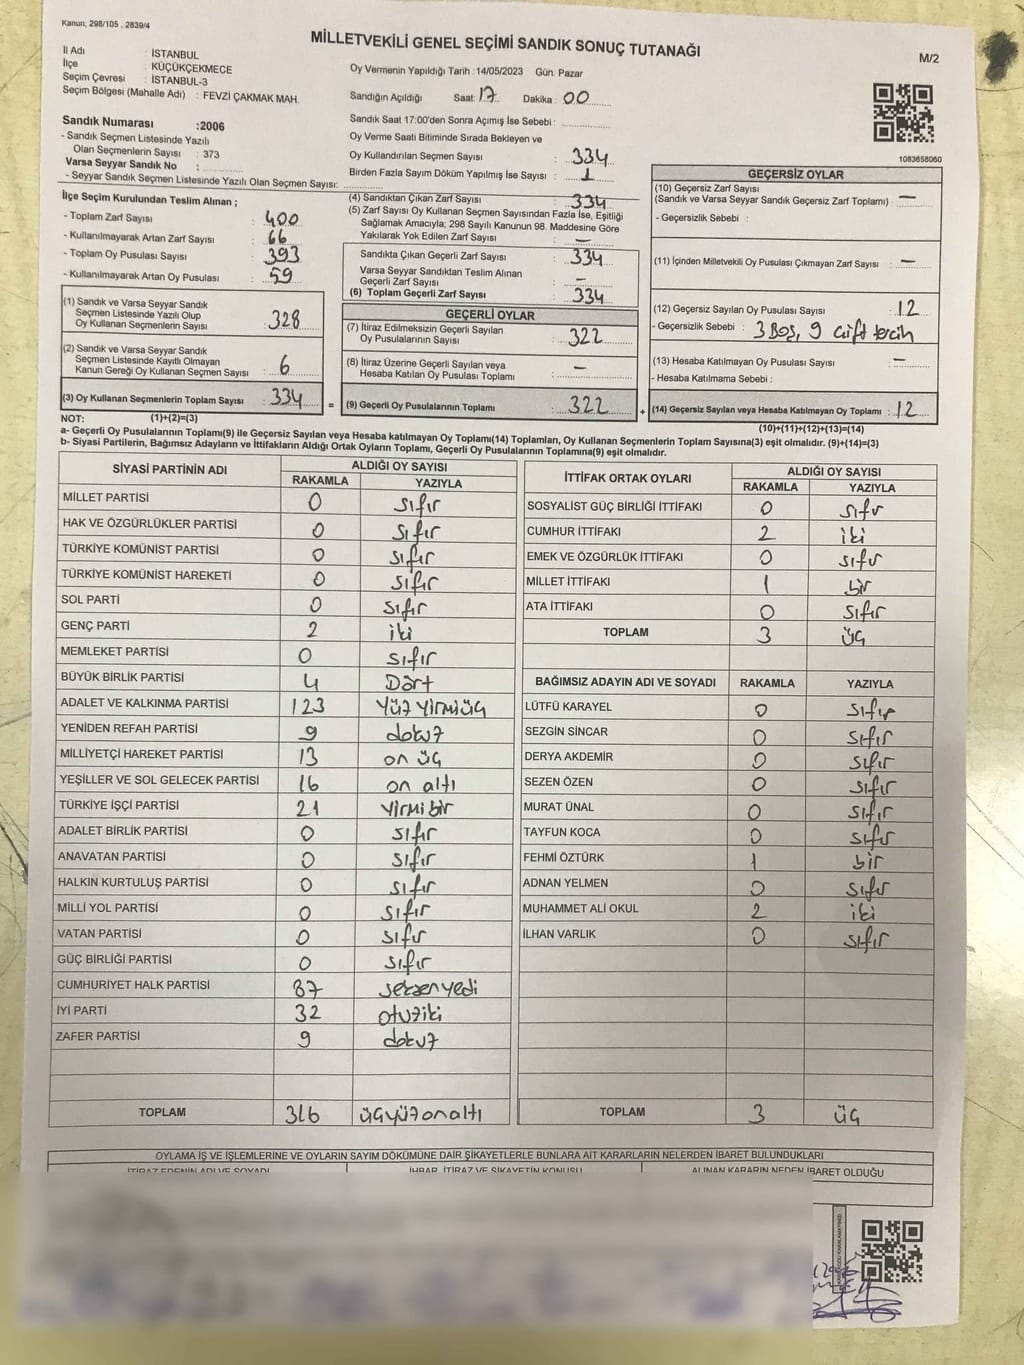 Kanun; 298/105 , 2839/4
MİLLETVEKİLİ GENEL SEÇİMİ SANDIK SONUÇ TUTANAĞI
M/2
İl Adı : İSTANBUL
İlçe : KÜÇÜKÇEKMECE
Seçim Çevresi : İSTANBUL-3
Seçim Bölgesi (Mahalle Adı) : FEVZİ ÇAKMAK MAH.
Oy Vermenin Yapıldığı Tarih : 14/05/2023 Gün: Pazar
Sandığın Açıldığı Saat: 17 Dakika : 00
Sandık Saat 17:00'den Sonra Açımış İse Sebebi :
Oy Verme Saati Bitiminde Sırada Bekleyen ve
Oy Kullandırılan Seçmen Sayısı : 334
Birden Fazla Sayım Döküm Yapılmış İse Sayısı : 1
Sandık Numarası :2006
- Sandık Seçmen Listesinde Yazılı
Olan Seçmenlerin Sayısı : 373
Varsa Seyyar Sandık No :
- Seyyar Sandık Seçmen Listesinde Yazılı Olan Seçmen Sayısı:
1083658060
İlçe Seçim Kurulundan Teslim Alınan ;
- Toplam Zarf Sayısı : 400
- Kullanılmayarak Artan Zarf Sayısı : 66
- Toplam Oy Pusulası Sayısı : 393
- Kullanılmayarak Artan Oy Pusulası : 59
(1) Sandık ve Varsa Seyyar Sandık
Seçmen Listesinde Yazılı Olup
Oy Kullanan Seçmenlerin Sayısı : 328
(2) Sandık ve Varsa Seyyar Sandık
Seçmen Listesinde Kayıtlı Olmayan
Kanun Gereği Oy Kullanan Seçmen Sayısı : 6
(3) Oy Kullanan Seçmenlerin Toplam Sayısı : 334
(1)+(2)=(3)
(4) Sandıktan Çıkan Zarf Sayısı : 334
(5) Zarf Sayısı Oy Kullanan Seçmen Sayısından Fazla İse, Eşitliği
Sağlamak Amacıyla; 298 Sayılı Kanunun 98. Maddesine Göre
Yakılarak Yok Edilen Zarf Sayısı : —
Sandıkta Çıkan Geçerli Zarf Sayısı : 334
Varsa Seyyar Sandıktan Teslim Alınan
Geçerli Zarf Sayısı : —
(6) Toplam Geçerli Zarf Sayısı : 334
GEÇERLİ OYLAR
(7) İtiraz Edilmeksizin Geçerli Sayılan
Oy Pusulalarının Sayısı : 322
(8) İtiraz Üzerine Geçerli Sayılan veya
Hesaba Katılan Oy Pusulası Toplamı : —
= (9) Geçerli Oy Pusulalarının Toplamı : 322
GEÇERSİZ OYLAR
(10) Geçersiz Zarf Sayısı
(Sandık ve Varsa Seyyar Sandık Geçersiz Zarf Toplamı) : —
- Geçersizlik Sebebi :
(11) İçinden Milletvekili Oy Pusulası Çıkmayan Zarf Sayısı : —
(12) Geçersiz Sayılan Oy Pusulası Sayısı : 12
- Geçersizlik Sebebi : 3 Boş, 9 çift tercih
(13) Hesaba Katılmayan Oy Pusulası Sayısı : —
- Hesaba Katılmama Sebebi :
+ (14) Geçersiz Sayılan veya Hesaba Katılmayan Oy Toplamı : 12
(10)+(11)+(12)+(13)=(14)
NOT:
a- Geçerli Oy Pusulalarının Toplamı(9) ile Geçersiz Sayılan veya Hesaba katılmayan Oy Toplamı(14) Toplamları, Oy Kullanan Seçmenlerin Toplam Sayısına(3) eşit olmalıdır. (9)+(14)=(3)
b- Siyasi Partilerin, Bağımsız Adayların ve İttifakların Aldığı Ortak Oyların Toplamı, Geçerli Oy Pusulalarının Toplamına(9) eşit olmalıdır.
SİYASİ PARTİNİN ADI ALDIĞI OY SAYISI
RAKAMLA YAZIYLA
MİLLET PARTİSİ 0 sıfır
HAK VE ÖZGÜRLÜKLER PARTİSİ 0 sıfır
TÜRKİYE KOMÜNİST PARTİSİ 0 sıfır
TÜRKİYE KOMÜNİST HAREKETİ 0 sıfır
SOL PARTİ 0 sıfır
GENÇ PARTİ 2 iki
MEMLEKET PARTİSİ 0 sıfır
BÜYÜK BİRLİK PARTİSİ 4 Dört
ADALET VE KALKINMA PARTİSİ 123 Yüz yirmi üç
YENİDEN REFAH PARTİSİ 9 dokuz
MİLLİYETÇİ HAREKET PARTİSİ 13 on üç
YEŞİLLER VE SOL GELECEK PARTİSİ 16 on altı
TÜRKİYE İŞÇİ PARTİSİ 21 Yirmi bir
ADALET BİRLİK PARTİSİ 0 sıfır
ANAVATAN PARTİSİ 0 sıfır
HALKIN KURTULUŞ PARTİSİ 0 sıfır
MİLLİ YOL PARTİSİ 0 sıfır
VATAN PARTİSİ 0 sıfır
GÜÇ BİRLİĞİ PARTİSİ 0 sıfır
CUMHURİYET HALK PARTİSİ 87 seksen yedi
İYİ PARTİ 32 otuz iki
ZAFER PARTİSİ 9 dokuz
TOPLAM 316 üçyüz on altı
İTTİFAK ORTAK OYLARI ALDIĞI OY SAYISI
RAKAMLA YAZIYLA
SOSYALİST GÜÇ BİRLİĞİ İTTİFAKI 0 sıfır
CUMHUR İTTİFAKI 2 iki
EMEK VE ÖZGÜRLÜK İTTİFAKI 0 sıfır
MİLLET İTTİFAKI 1 bir
ATA İTTİFAKI 0 sıfır
TOPLAM 3 üç
BAĞIMSIZ ADAYIN ADI VE SOYADI RAKAMLA YAZIYLA
LÜTFÜ KARAYEL 0 sıfır
SEZGİN SİNCAR 0 sıfır
DERYA AKDEMİR 0 sıfır
SEZEN ÖZEN 0 sıfır
MURAT ÜNAL 0 sıfır
TAYFUN KOCA 0 sıfır
FEHMİ ÖZTÜRK 1 bir
ADNAN YELMEN 0 sıfır
MUHAMMET ALİ OKUL 2 iki
İLHAN VARLIK 0 sıfır
TOPLAM 3 üç
OYLAMA İŞ VE İŞLEMLERİNE VE OYLARIN SAYIM DÖKÜMÜNE DAİR ŞİKAYETLERLE BUNLARA AİT KARARLARIN NELERDEN İBARET BULUNDUKLARI
İTİRAZ EDENİN ADI VE SOYADI İHBAR, İTİRAZ VE ŞİKAYETİN KONUSU ALINAN KARARIN NEDEN İBARET OLDUĞU